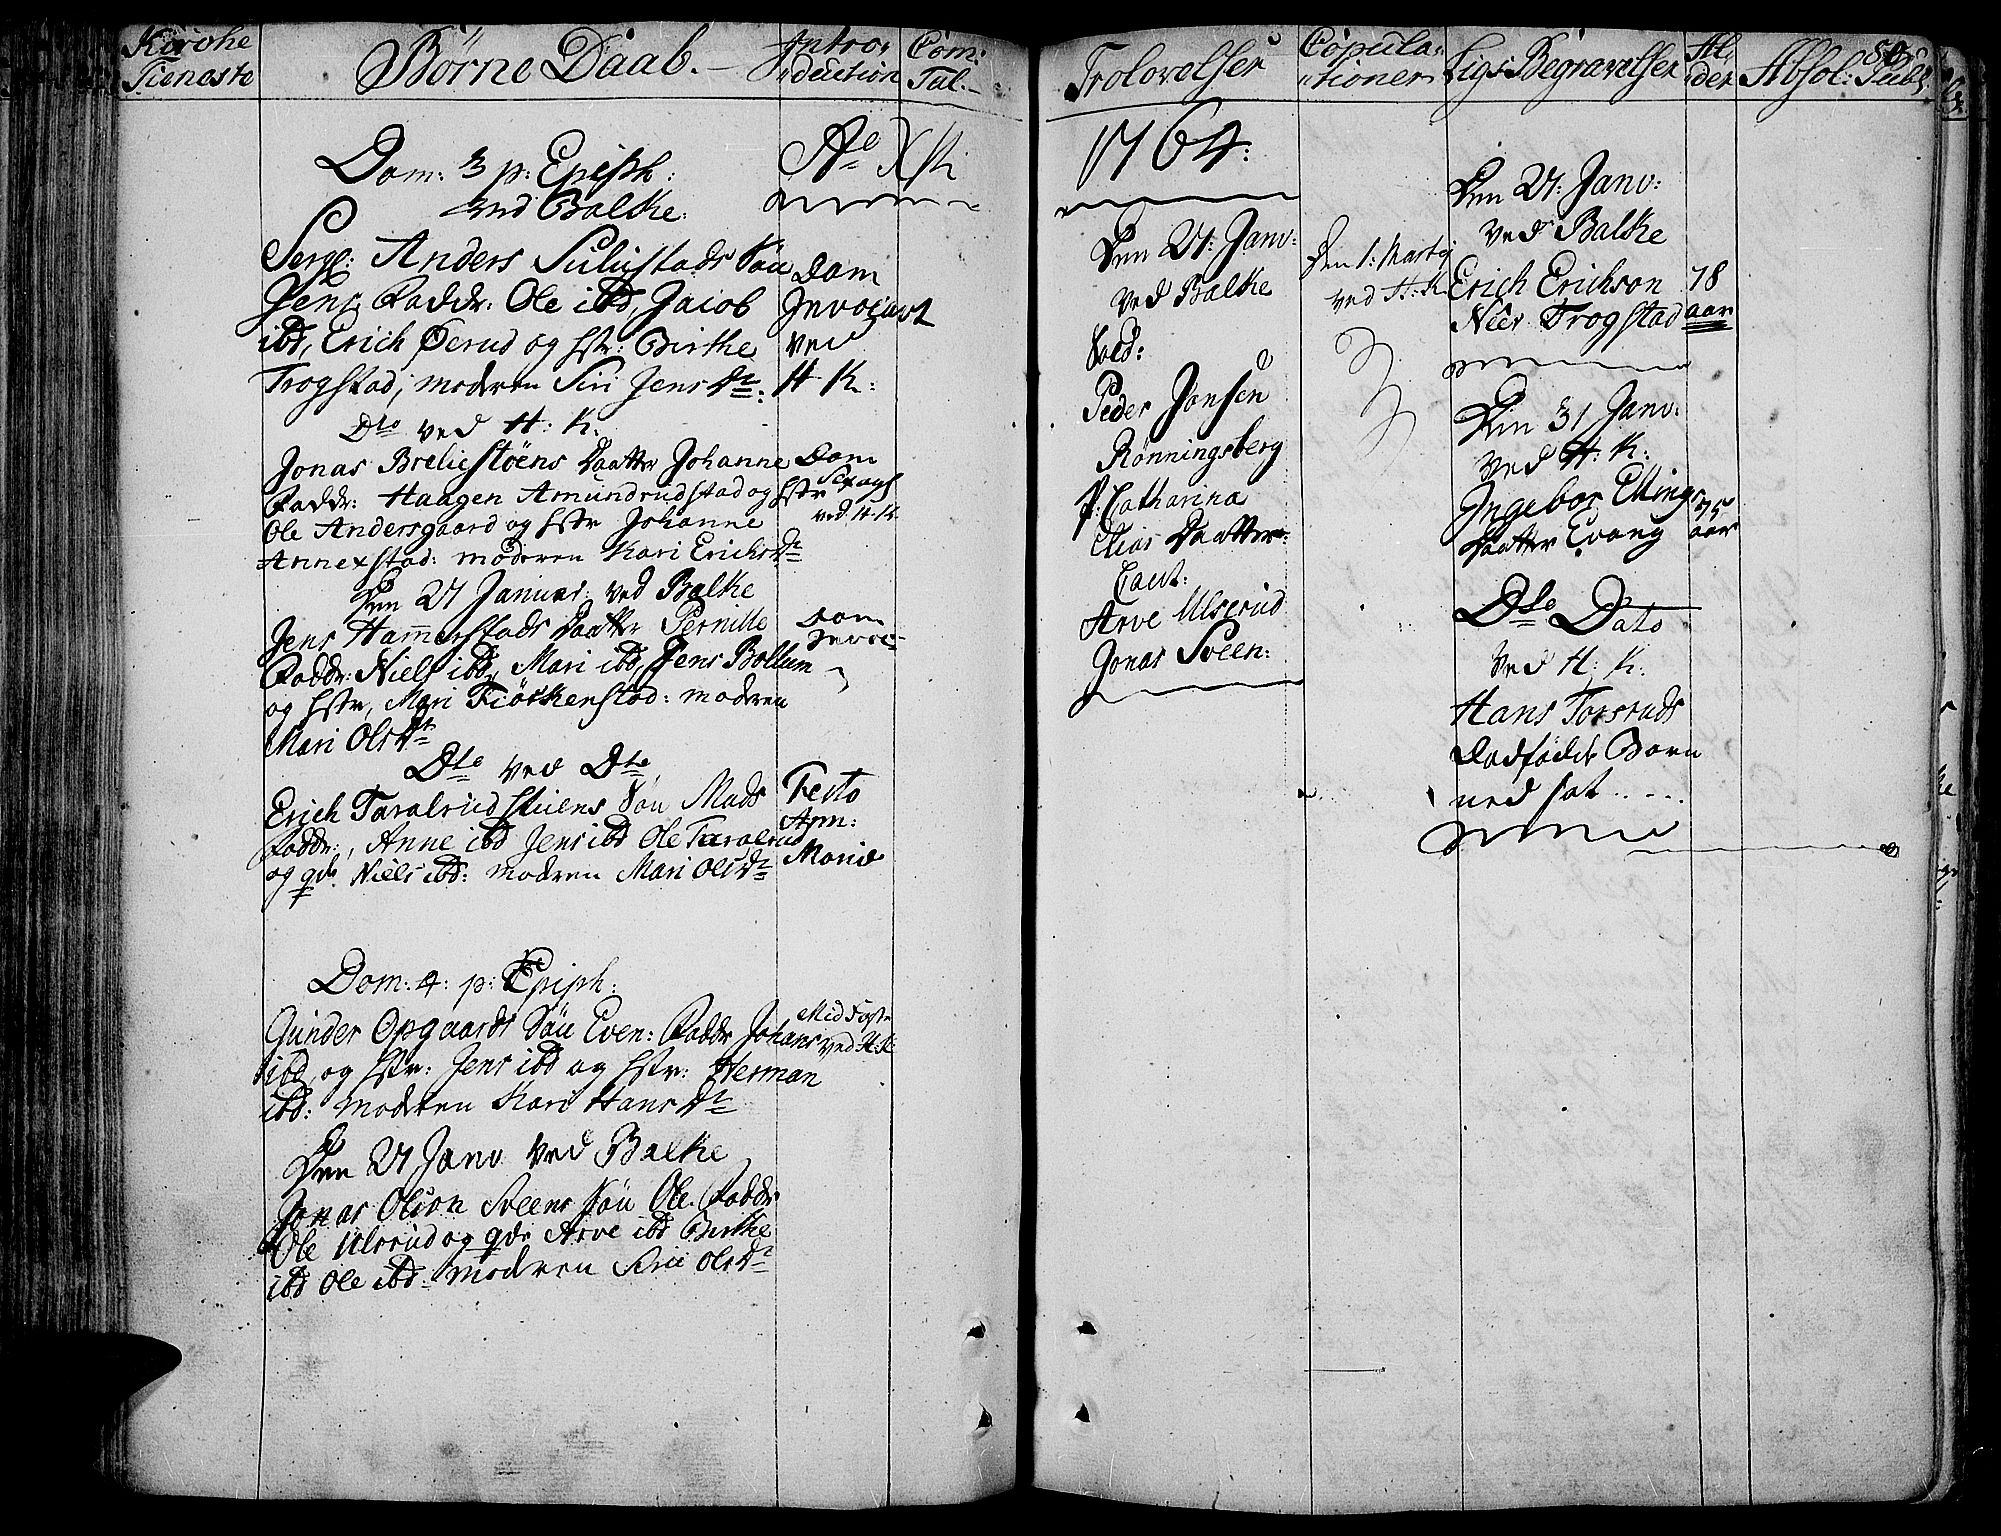 Kirche
Tieneste
Børne Daab.
Intro-
duction
Com:
Tal.
Dom: 3 p: Epiph:
ved Balke:
Ao Xsti
Serg: Anders Sulustads Søn
Jens, Faddr: Ole ibd, Jacob
ibd, Erich Øerud og hstr: Birthe
Trogstad, moderen Siri Jens Dtr:
Dom
Invocavt
ved
H K:
Dto ved H: K.
Jonas Breliestöens Daatter Johanne
Faddr: Haagen Amundrudstad og hstr
Ole Andersgaard og hstr Johanne
Annexstad: moderen Kari Erichs Dtr
Dom
Sexages
ved H. K.
Den 27 Januar: ved Balke
Jens Hammerstads Daatter Pernille
Faddr: Niels ibd, Mari ibd, Jens Bollum
og hstr, Mari Fiörkenstad: modren
Mari Ols Dtr
Dom
Invoc-
Dto ved Dto
Erich Taralrudstuens Søn Mads
Faddr:, Anne ibd Jens ibd Ole Taralrud
og qde. Niels ibd: modren Mari Ols Dtr
Festo
Ann:
Mariæ
Dom: 4: p: Epiph:
Gunder Opgaards Søn Even: Faddr Johans
ibd, og hstr: Jens ibd og hstr: Herman
ibd: modren Kari Hans Dtr
Mid Faste
ved H. K:
Den 27 Janv ved Balke
Jonas Olson Sveens Søn Ole. Faddr
Ole Ulsrud og qde Arve ibd Birthe
ibd Ole ibd: modren Siri Ols Dtr
Trolovelser
Copula-
tioner
Ligs Begravelser
Al-
der
Absol: Publ:
1764:
Den 27: Janv:
ved Balke
Sold:
Peder Jonsen
Rönningsberg
P: Catharina
Elias Daatter:
Caut:
Arve Ulserud
Jonas Sveen:
Den 1: Martij
ved H: K.
Den 27: Janv:
ved Balke
Erich Erichson 78
Neer Trogstad aar
Den 31 Janv:
ved H: K:
Ingebor Ellings 75
Daatter Evang aar
Dto Dato
ved H: K:
Hans Torsruds
Dødfødde Barn
ned sat . . . .